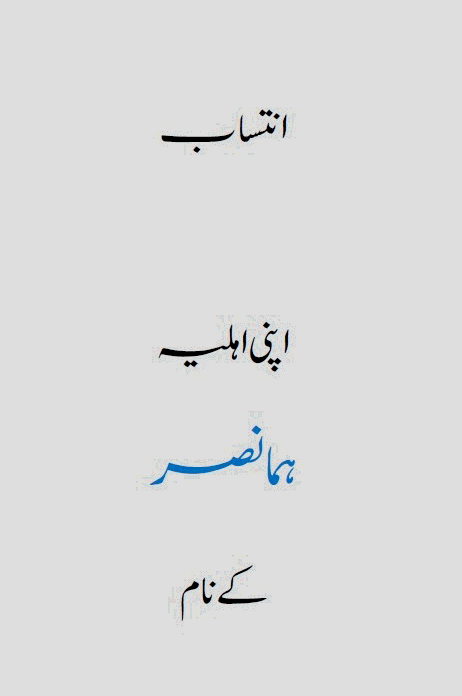 انتساب
اپنی اہلیہ
ہما نصر
کے نام